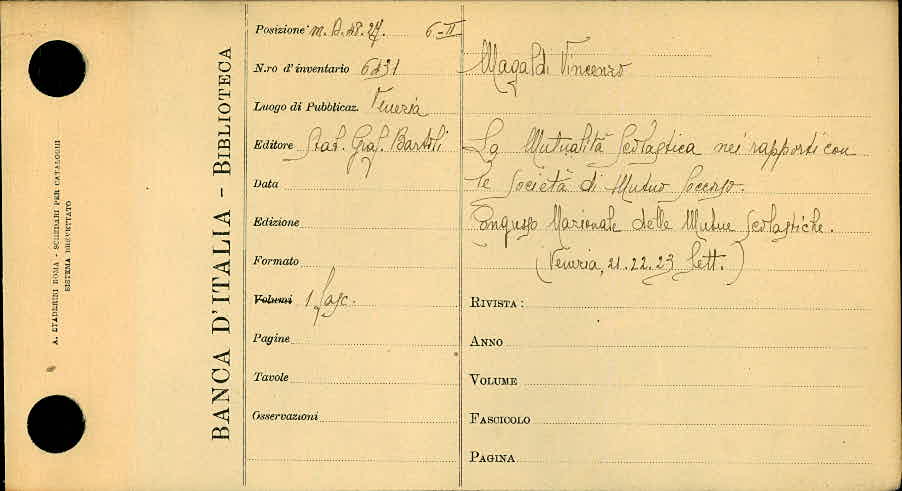 A. STADERINI ROMA - SCHEDARI PER CATALOGHI
SISTEMA BREVETTATO
BANCA D'ITALIA - BIBLIOTECA
Posizione m. B. 48. 27. 6-II
N.ro d'inventario 6131
Luogo di Pubblicaz. Venezia
Editore Stab. Graf. Bartoli
Data
Edizione
Formato
Volumi 1 fasc.
Pagine
Tavole
Osservazioni
Magaldi Vincenzo
La Mutualità Scolastica nei rapporti con
le Società di Mutuo Soccorso.
Congresso Nazionale delle Mutue Scolastiche.
(Venezia, 21.22.23 Sett.)
RIVISTA:
ANNO
VOLUME
FASCICOLO
PAGINA